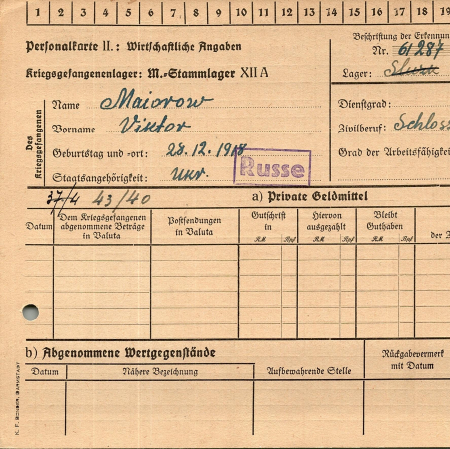 1 2 3 4 5 6 7 8 9 10 11 12 13 14 15 16 17 18 19
Personalkarte II.: Wirtschaftliche Angaben
Beschriftung der Erkennun
Nr. 61287
Kriegsgefangenenlager: M.-Stammlager XII A
Lager:
Des Kriegsgefangenen
Name Maiorow
Dienstgrad:
Vorname Viktor
Zivilberuf: Schloss
Geburtstag und -ort: 28.12.1918
Grad der Arbeitsfähigkeit
Russe
Staatsangehörigkeit: Ukr.
37/4 43/40
a) Private Geldmittel
Datum
Dem Kriegsgefangenen abgenommene Beträge in Valuta
Postsendungen in Valuta
Gutschrift in
RM Rpf
Hiervon ausgezahlt
RM Rpf
Bleibt Guthaben
RM Rpf
der Z
b) Abgenommene Wertgegenstände
Rückgabevermerk mit Datum
Datum
Nähere Bezeichnung
Aufbewahrende Stelle